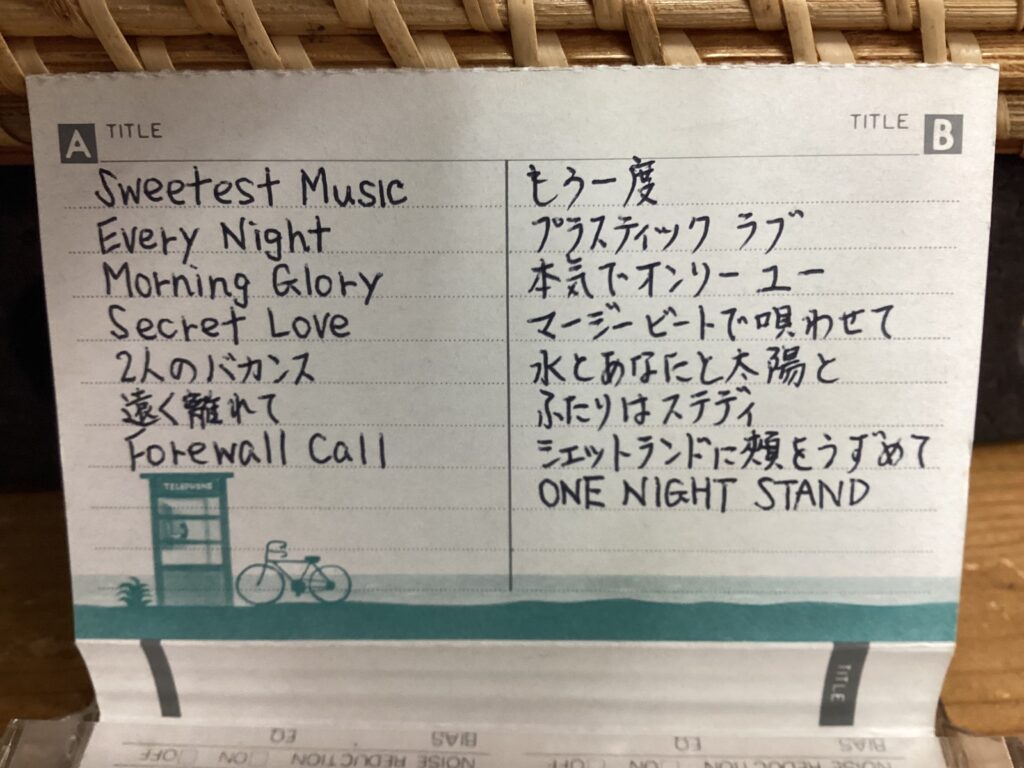 A TITLE
Sweetest Music
Every Night
Morning Glory
Secret Love
2人のバカンス
遠く離れて
Forewall Call
TELEPHONE
TITLE B
もう一度
プラスティック ラブ
本気でオンリー ユー
マージービートで唄わせて
水とあなたと太陽と
ふたりはステディ
シェットランドに頬をうずめて
ONE NIGHT STAND
TITLE
BIAS EQ BIAS EQ
NOISE REDUCTION ON OFF NOISE REDUCTION ON OFF